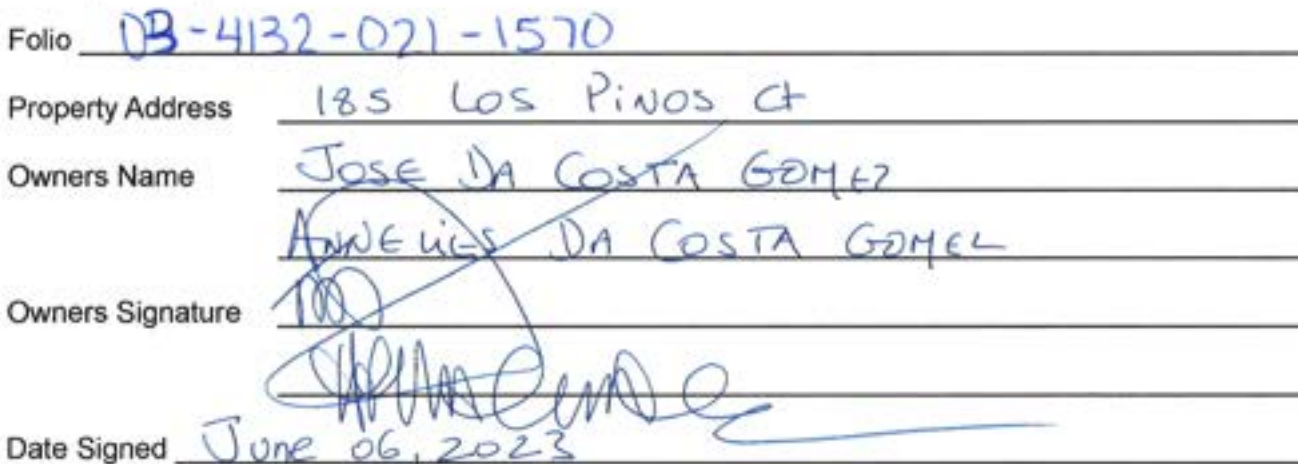 Folio 03-4132-021-1570
Property Address 185 Los Pinos Ct
Owners Name JOSE DA COSTA GOMEZ
ANNELIES DA COSTA GOMEZ
Owners Signature
Date Signed June 06, 2023